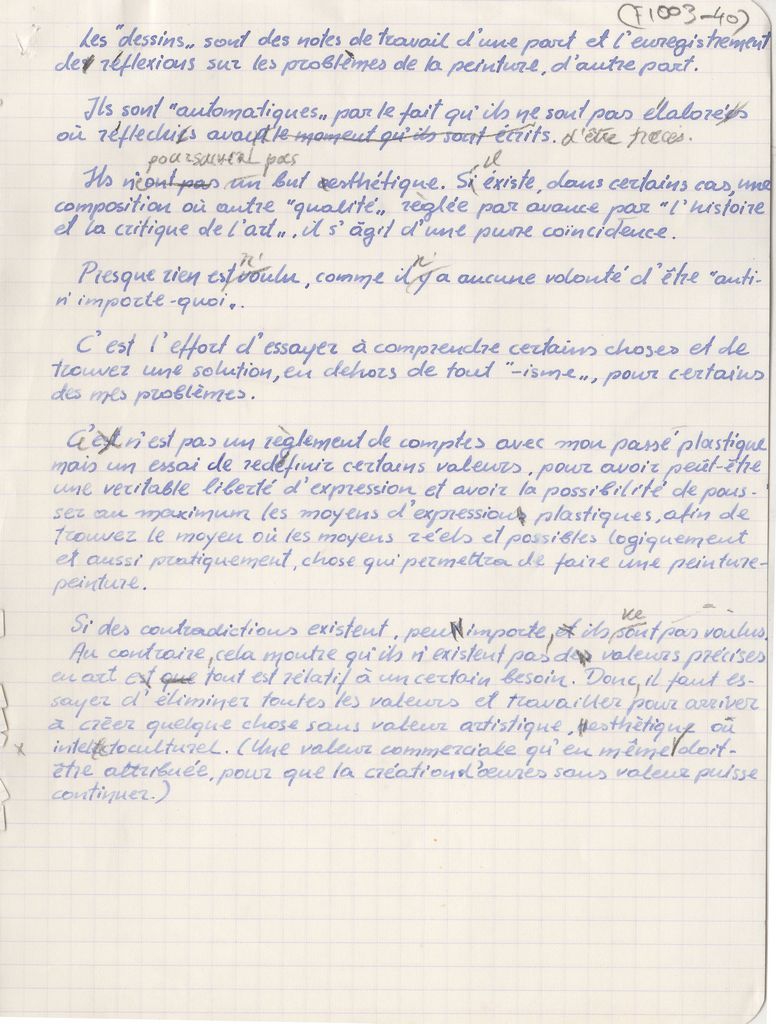 (F1003-40)
Les "dessins„ sont des notes de travail d'une part et l'enregistrement
de réflexions sur les problèmes de la peinture, d'autre part.
Ils sont "automatiques„ par le fait qu'ils ne sont pas élaborés
où réflechis avant le moment qu'ils sont écrits. d'être tracés.
poursuivent pas il
Ils n'ont pas un but esthétique. Si éxiste, dans certains cas, une
composition où autre "qualité„ règlée par avance par "l'histoire
et la critique de l'art„, il s'âgit d'une puure coïncidence.
n' n'
Presque rien est voulu, comme il y a aucune volonté d'être "anti-
n'importe-quoi„.
C'est l'effort d'essayer à comprendre certains choses et de
trouver une solution, en dehors de tout "-isme„, pour certains
des mes problèmes.
Ce n'est pas un règlement de comptes avec mon passé plastique
mais un essai de redéfinir certains valeurs, pour avoir peût-être
une veritable liberté d'expression et avoir la possibilité de pous-
ser au maximum les moyens d'expression plastiques, afin de
trouver le moyen où les moyens réels et possibles logiquement
et aussi pratiquement, chose qui permettra de faire une peinture-
peinture.
ne
Si des contradictions existent, peu importe, et ils sont pas voulus.
Au contraire, cela montre qu'ils n'existent pas de valeurs précises
en art est que tout est rélatif à un certain besoin. Donc, il faut es-
sayer d'éliminer toutes les valeurs et travailler pour arriver
à créer quelque chose sans valeur artistique, esthétique où
intellectoculturel. (Une valeur commerciale qu'en même doit-
être attribuée, pour que la création d'œuvres sans valeur puisse
continuer.)